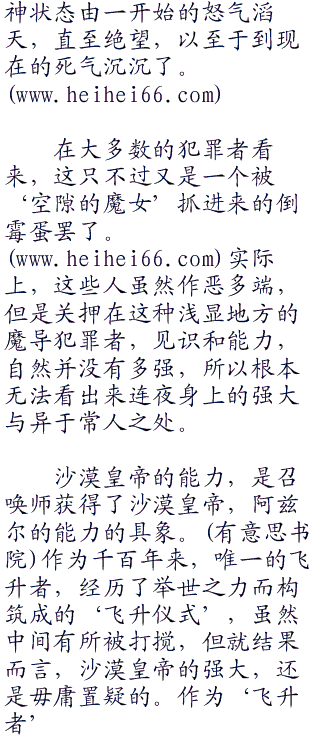 神状态由一开始的怒气滔
天，直至绝望，以至于到现
在的死气沉沉了。
(www.heihei66.com)
在大多数的犯罪者看
来，这只不过又是一个被
‘空隙的魔女’抓进来的倒
霉蛋罢了。
(www.heihei66.com)实际
上，这些人虽然作恶多端，
但是关押在这种浅显地方的
魔导犯罪者，见识和能力，
自然并没有多强，所以根本
无法看出来连夜身上的强大
与异于常人之处。
沙漠皇帝的能力，是召
唤师获得了沙漠皇帝，阿兹
尔的能力的具象。(有意思书
院)作为千百年来，唯一的飞
升者，经历了举世之力而构
筑成的‘飞升仪式’，虽然
中间有所被打搅，但就结果
而言，沙漠皇帝的强大，还
是毋庸置疑的。作为‘飞升
者’